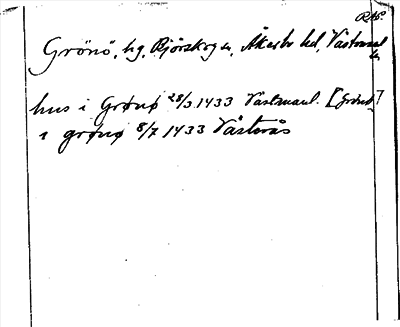 RAp.
Grönö, hg, Björskogs sn, Åkerbo hd, Västmanl
hus i Grønø 28/3 1433 Västmanl. [Grönö]
i grønø 8/7 1433 Västerås